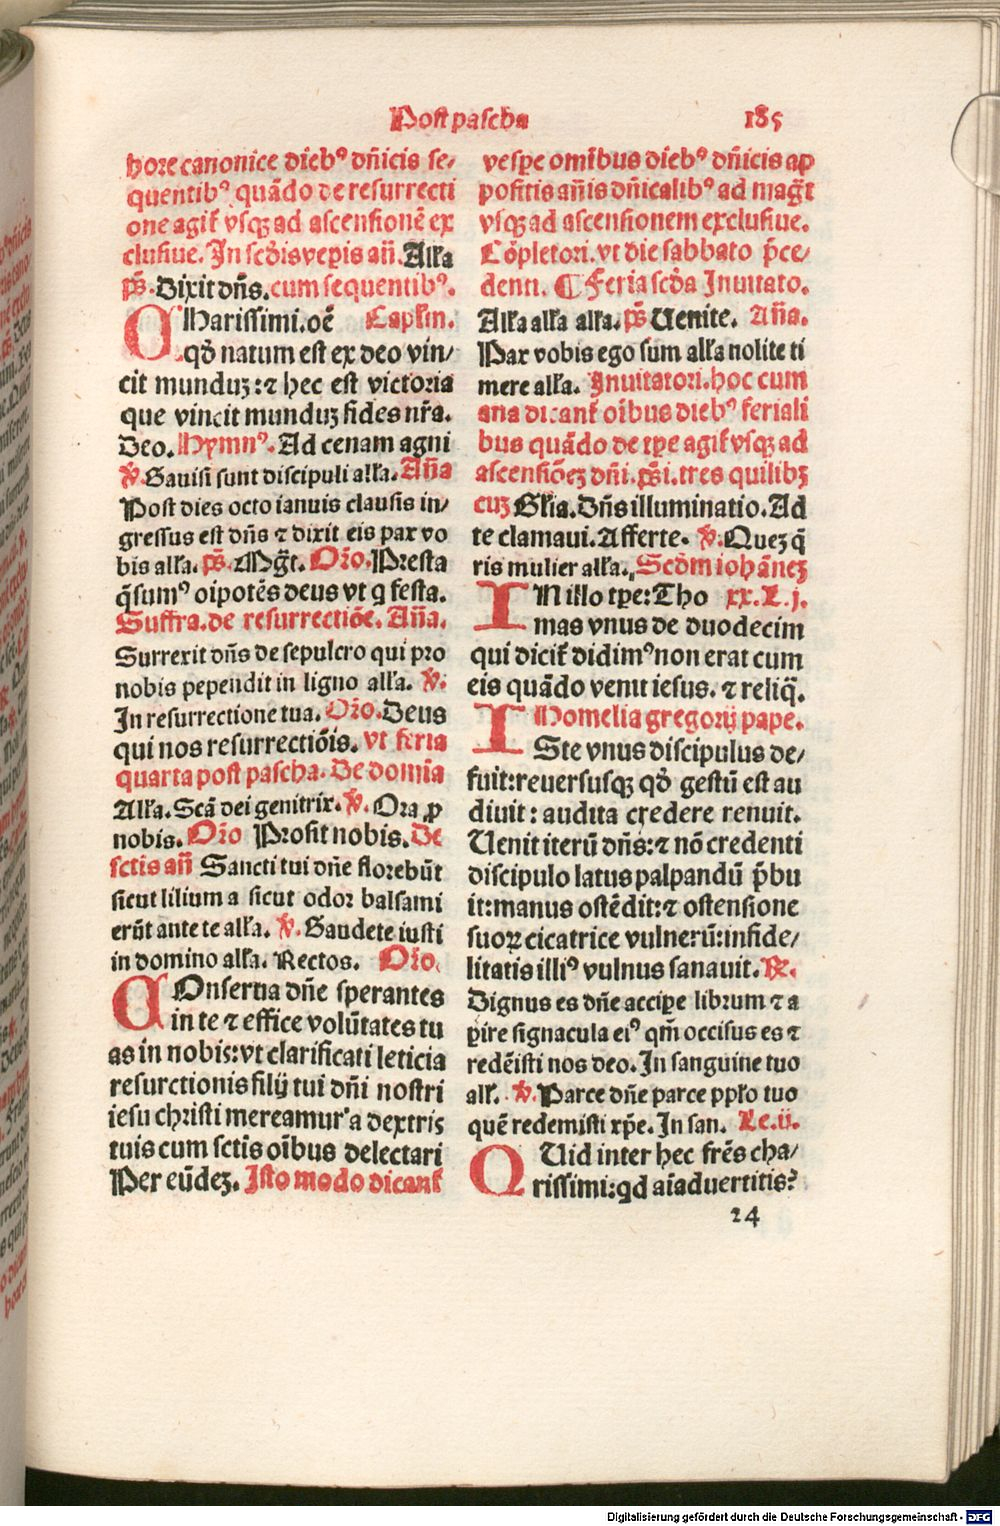 Post pascha 185
hore canonice dieb⁹ dñicis se⸗
quentib⁹ quãdo de resurrecti
one agit̃ vsqꝫ ad ascensionẽ ex
clusiue. In scd̃is vep̱is añ. Alľa
p̃s. Dixit dñs. cum sequentib⁹.
CHarissimi. oẽ Capľm.
qd̃ natum est ex deo vin⸗
cit munduꝫ: ⁊ hec est victoria
que vincit munduꝫ fides nr̃a.
Deo. Hymn⁹. Ad cenam agni
℣. Gauisi sunt discipuli alľa. Aña
Post dies octo ianuis clausis in⸗
gressus est dñs ⁊ dixit eis pax vo
bis alľa. p̃s. Mg̃t. Or̃o. Presta
q̃sum⁹ oipotẽs deus vt q festa.
Suffra. de resurrectiõe. Aña.
Surrexit dñs de sepulcro qui pro
nobis pependit in ligno alľa. ℣.
In resurrectione tua. Or̃o. Deus
qui nos resurrectiõis. vt feria
quarta post pascha. De domĩa
Alľa. Scã dei genitrix. ℣. Ora ꝓ
nobis. Or̃o Prosit nobis. De
sctis añ Sancti tui dñe florebũt
sicut lilium a sicut odor balsami
erũt ante te alľa. ℣. Gaudete iusti
in domino alľa. Rectos. Or̃o.
COnserua dñe sperantes
in te ⁊ effice volũtates tu
as in nobis: vt clarificati leticia
resurctionis filij tui dñi nostri
iesu christi mereamur a dextris
tuis cum sctis oĩbus delectari
Per eũdeꝫ. Isto modo dicant̃
vesp̱e omĩbus dieb⁹ dñicis ap
positis añis dñicalib⁹ ad mag̃t
vsqꝫ ad ascensionem exclusiue.
Cõpletori. vt die sabbato p̃ce⸗
denti. ¶ Feria scd̃a Inuitato.
Alľa alľa alľa. p̃s Uenite. Aña.
Pax vobis ego sum alľa nolite ti
mere alľa. Inuitatori. hoc cum
ana dicant̃ oĩbus dieb⁹ feriali
bus quãdo de tp̱e agit̃ vsqꝫ ad
ascensiõeꝫ dñi. p̃si. tres quilibꝫ
cuꝫ Glĩa. Dñs illuminatio. Ad
te clamaui. Afferte. ℣. Queꝫ q̃
ris mulier alľa. Scd̃m iohãneꝫ
IN illo tp̱e: Tho xx. L. j.
mas vnus de duodecim
qui dicit̃ didim⁹ non erat cum
eis quãdo venit iesus. ⁊ reliq̃.
Homelia gregorij pape.
ISte vnus discipulus de⸗
fuit: reuersusqꝫ qd̃ gestũ est au
diuit: audita credere renuit.
Uenit iterũ dñs: ⁊ nõ credenti
discipulo latus palpandũ p̃bu
it: manus ostẽdit: ⁊ ostensione
suoꝝ cicatrice vulnerũ: infide⸗
litatis illi⁹ vulnus sanauit. ℟.
Dignus es dñe accip̱e librum ⁊ a
p̱ire signacula ei⁹ qm̃ occisus es ⁊
redẽisti nos deo. In sanguine tuo
alľ. ℣. Parce dñe parce ppľo tuo
quẽ redemisti xp̃e. In san. Le. ij.
QUid inter hec frẽs cha⸗
rissimi: qd aĩaduertitis?
24
Digitalisierung gefördert durch die Deutsche Forschungsgemeinschaft - DFG